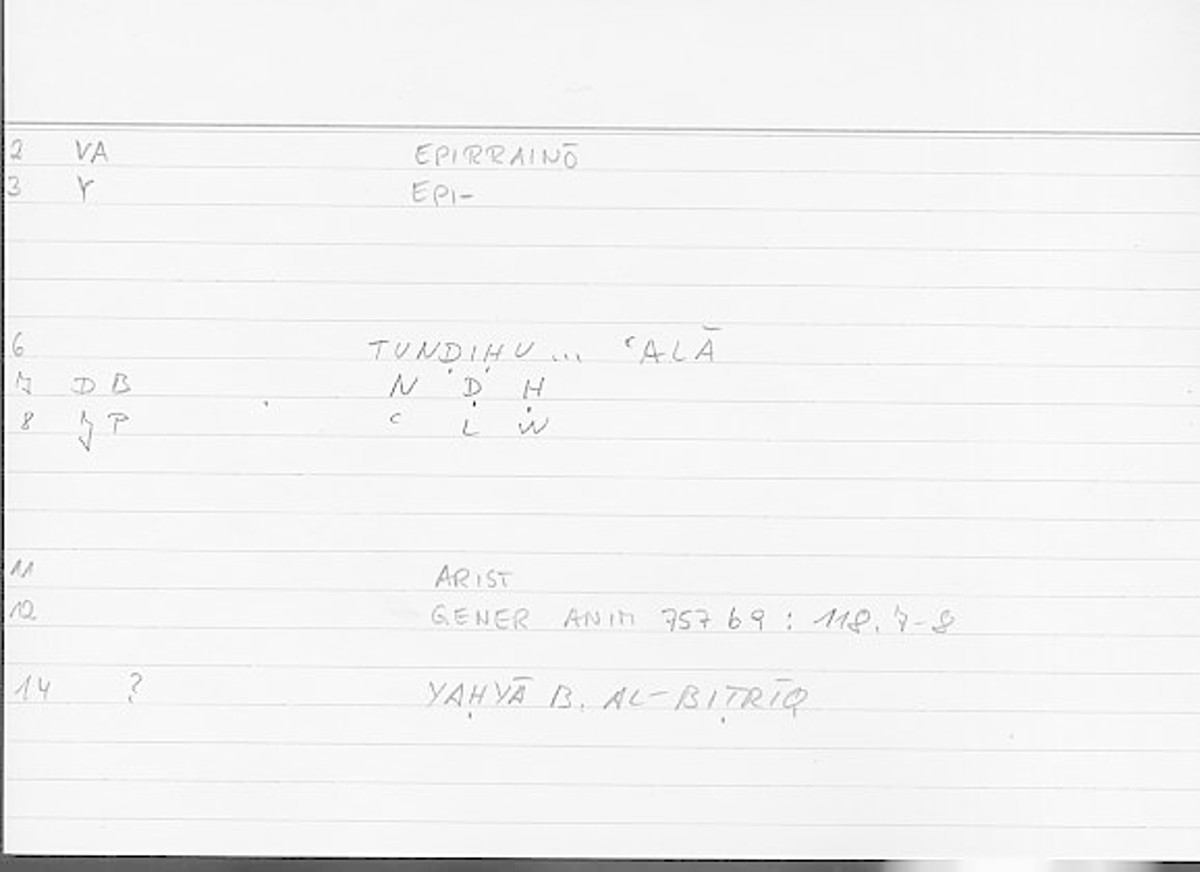 2 VA EPIRRAINŌ
3 Y EPI-
6 TUNḌIḤU ... ʿALĀ
7 D B N Ḍ Ḥ
8 P ʿ L W
11 ARIST
12 GENER ANIM 757 b 9 : 118. 7-8
14 ? YAḤYĀ B. AL-BIṬRĪQ